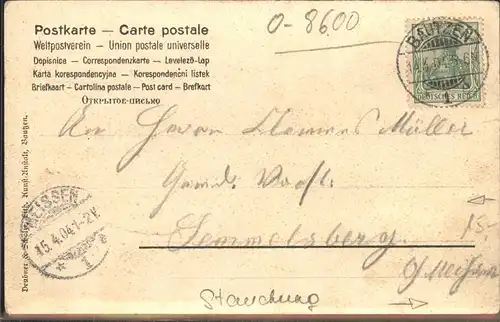 Postkarte — Carte postale
Weltpostverein — Union postale universelle
Dopisnica — Correspondenzkarte — Levelező-Lap
Karta korespondencyjna — Korespondenční lístek
Briefkaart — Cartolina postale — Post card — Brefkort
Открытое письмо
0-8600
BAUTZEN
DEUTSCHES REICH
An Herrn Clemens Müller
Semmelsberg
b/ Meißen
15.-
MEISSEN
15.4.04. 1-2 V.
* 1 e
Stauchung
Kunst-Anstalt, Bautzen.